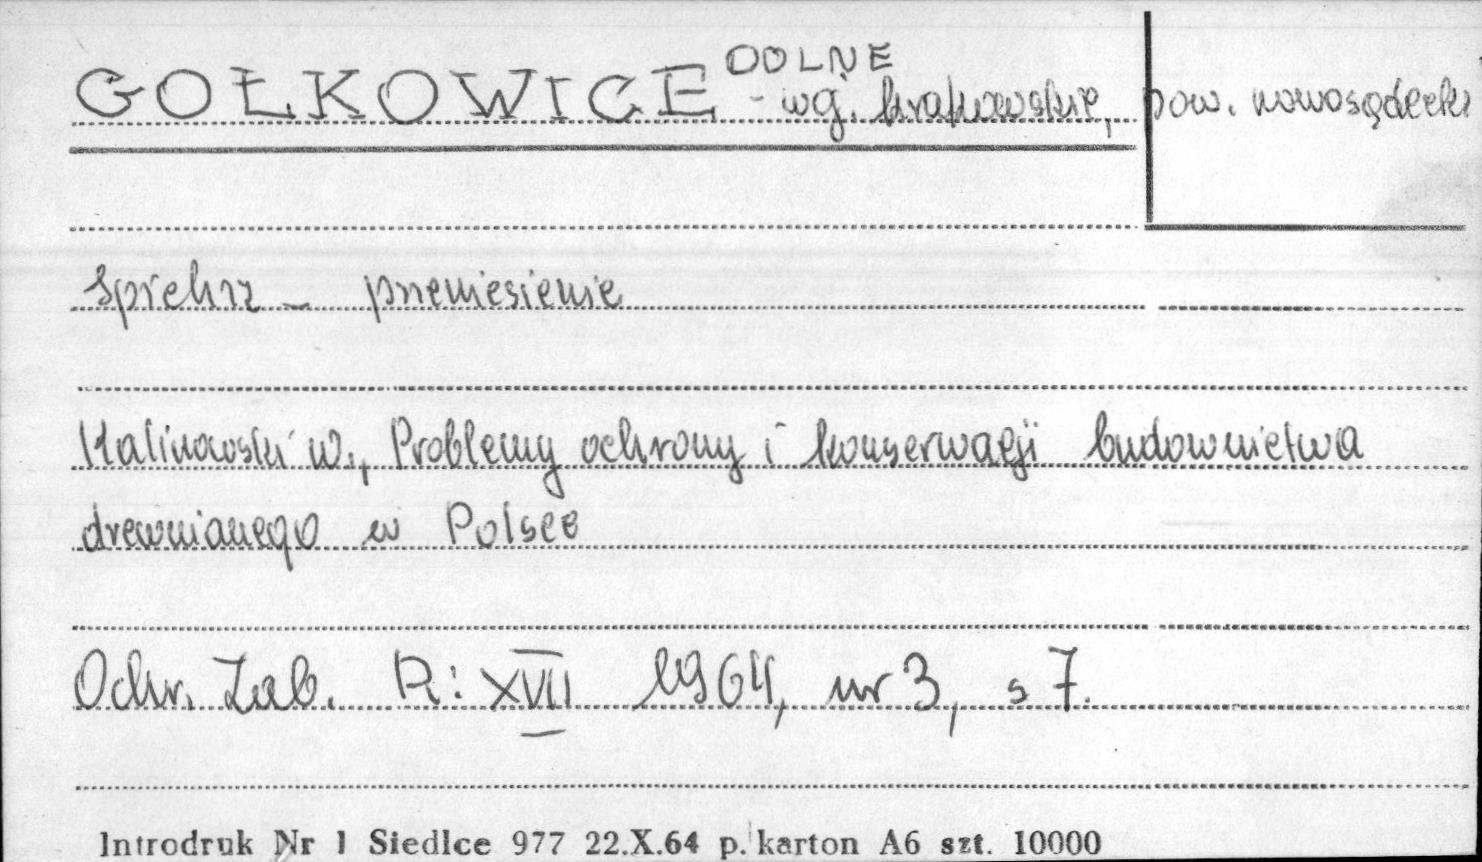 GOŁKOWICE DOLNE - woj. krakowskie, pow. nowosądecki
Spichrz – przeniesienie
Kalinowski W., Problemy ochrony i konserwacji budownictwa
drewnianego w Polsce
Ochr. Zab. R: XVII 1964, nr 3, s 7.
Introdruk Nr 1 Siedlce 977 22.X.64 p. karton A6 szt. 10000